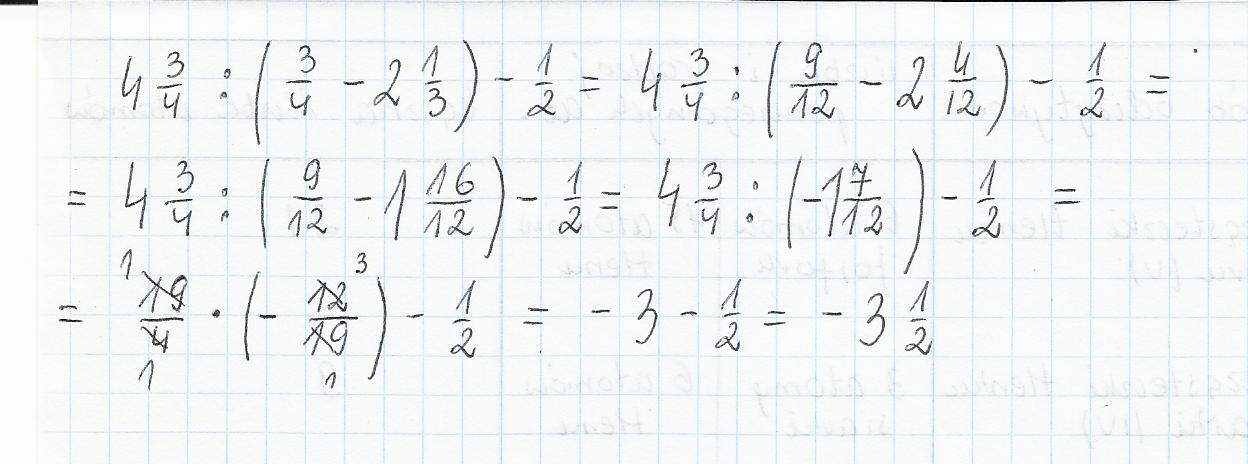 4 3/4 : (3/4 - 2 1/3) - 1/2 = 4 3/4 : (9/12 - 2 4/12) - 1/2 =
= 4 3/4 : (9/12 - 1 16/12) - 1/2 = 4 3/4 : (-1 7/12) - 1/2 =
1 3
= 19/4 · (- 12/19) - 1/2 = - 3 - 1/2 = - 3 1/2
1 1